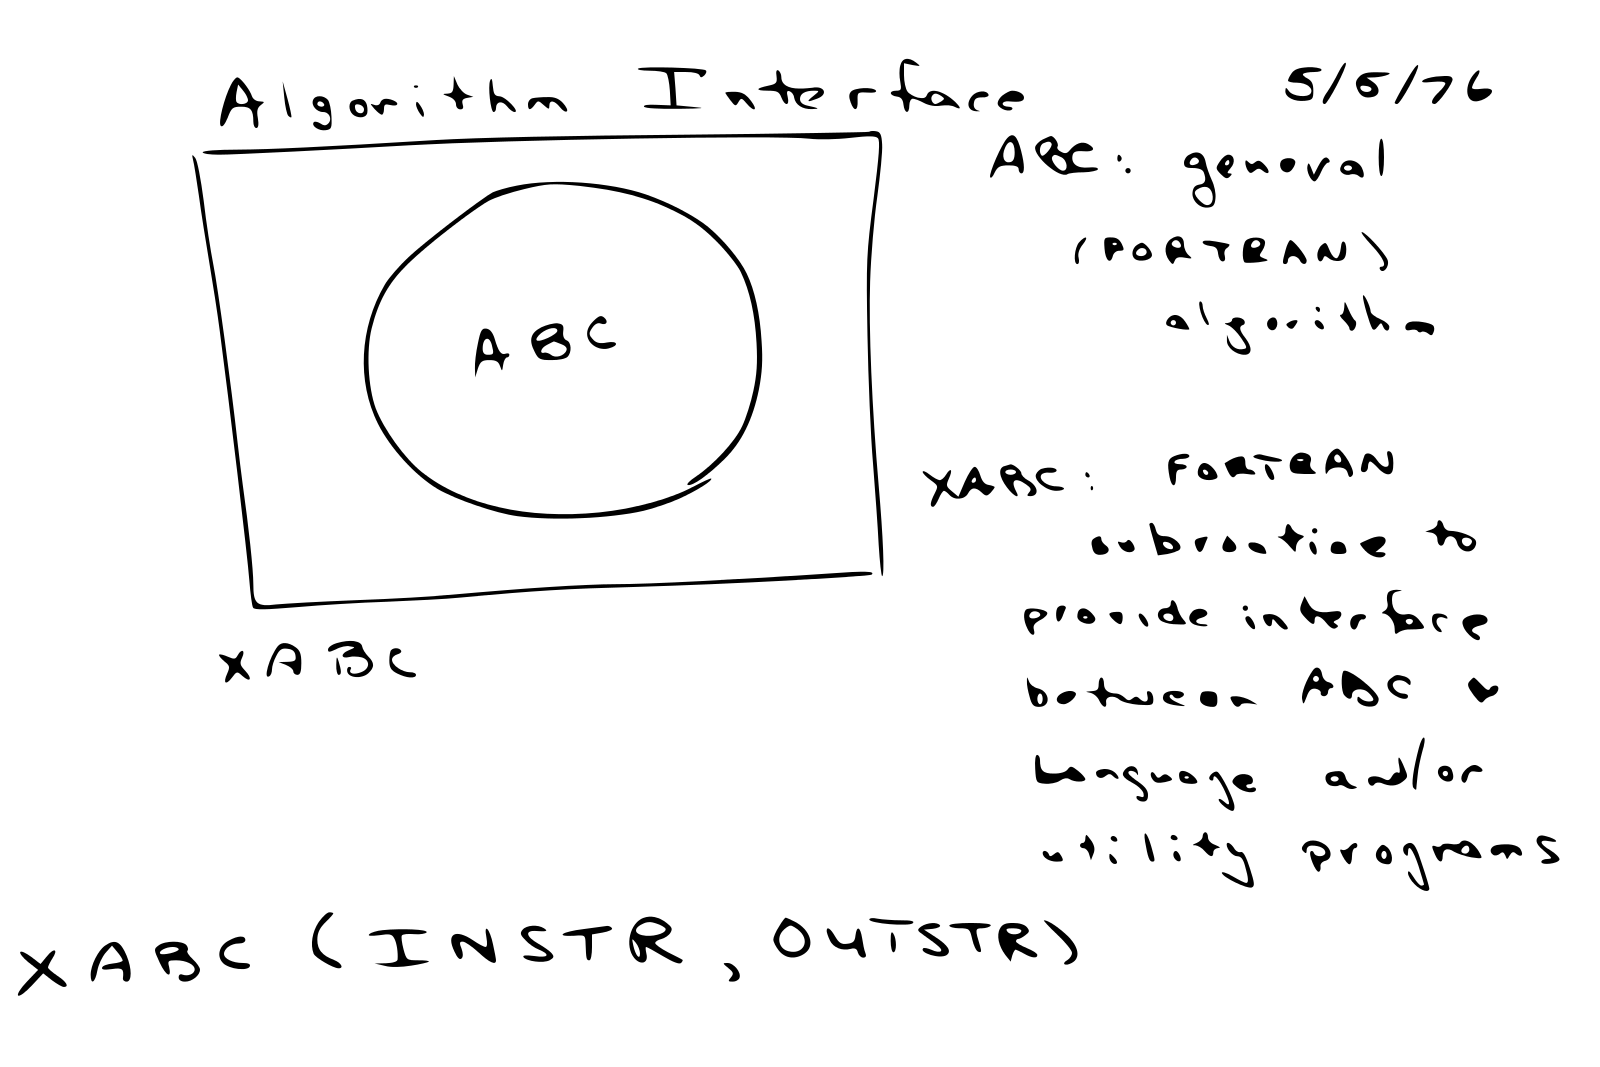 Algorithm Interface 5/5/76
ABC: general
(FORTRAN)
algorithm
ABC
XABC: FORTRAN
subroutine to
provide interface
between ABC &
language and/or
utility programs
XABC
XABC (INSTR, OUTSTR)